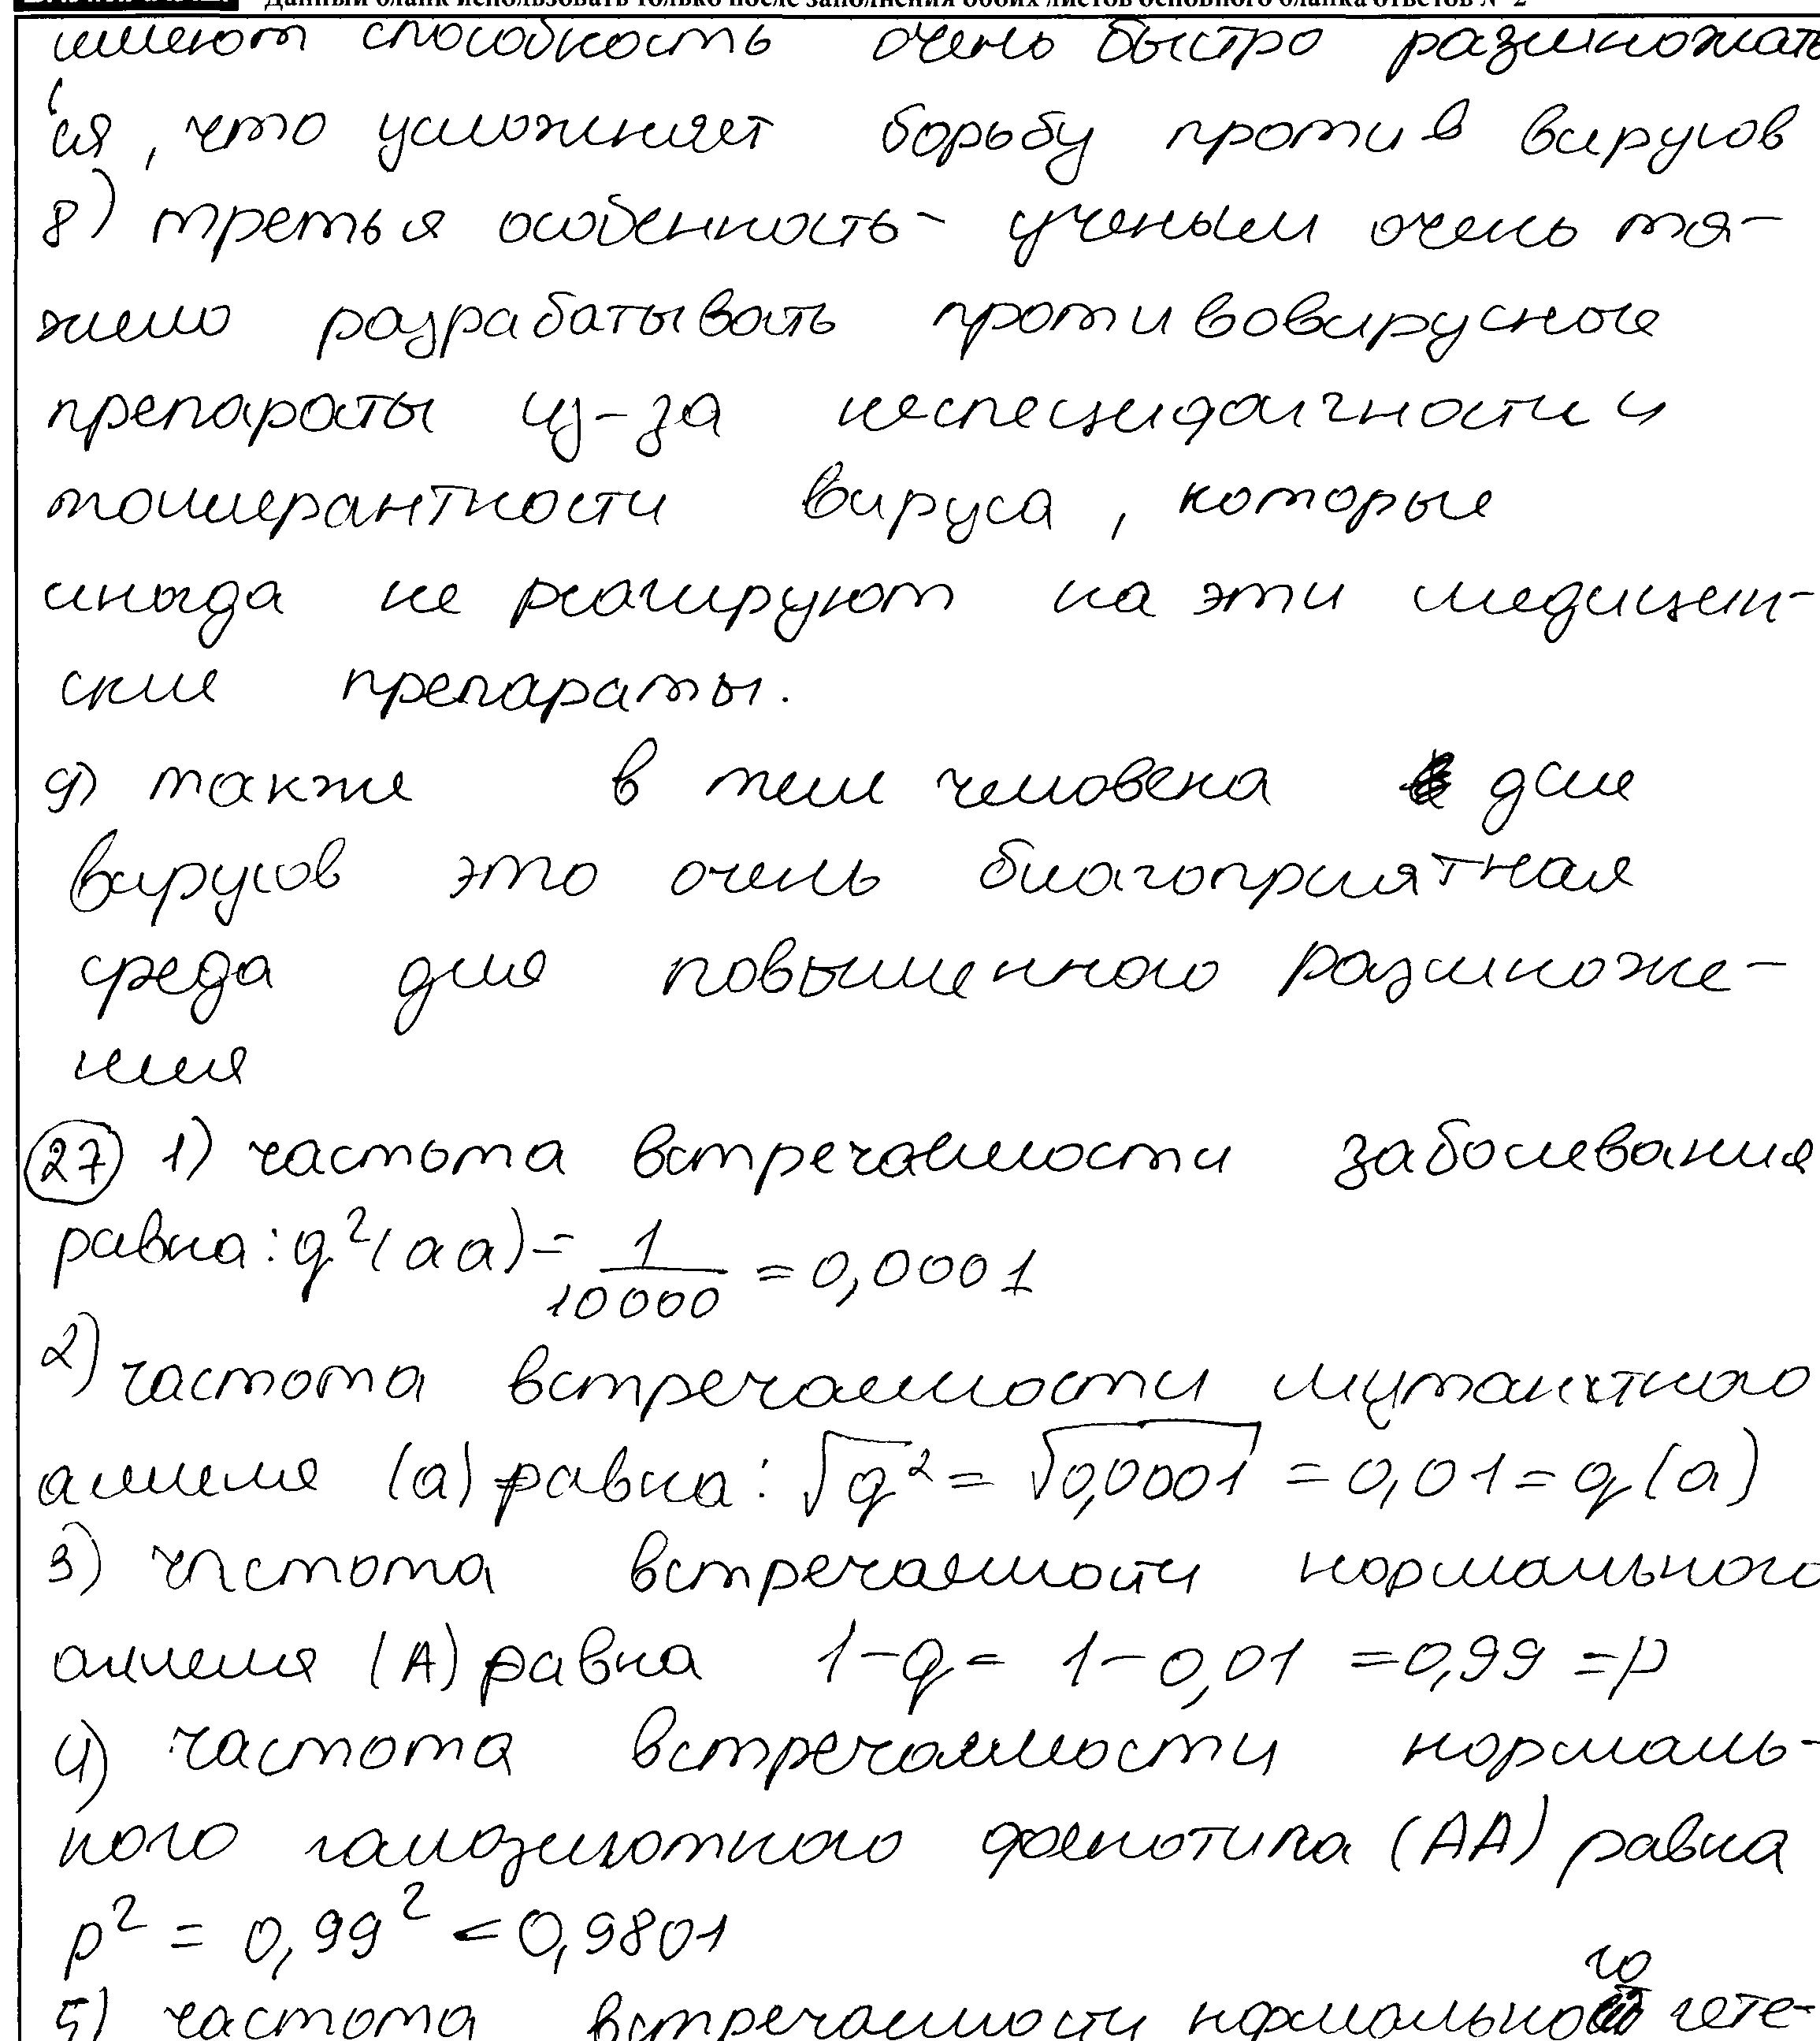 Данный бланк использовать только после заполнения обоих листов основного бланка ответов № 2
имеют способность очень быстро размножать
ся, что усложняет борьбу против вирусов
8) третья особенность - ученым очень тя-
жело разрабатывать противовирусные
препараты из-за неспецифичности и
толлерантности вируса, которые
иногда не реагируют на эти медицин-
ские препараты.
9) также в теле человека для
вирусов это очень благоприятная
среда для повышенного размноже-
ния
27 1) частота встречаемости заболевания
равна: q²(aa) = 1/10000 = 0,0001
2) частота встречаемости мутантного
аллеля (a) равна: √q² = √0,0001 = 0,01 = q(a)
3) частота встречаемости нормального
аллеля (A) равна 1-q = 1-0,01 = 0,99 = p
4) частота встречаемости нормаль-
ного гамозиготного фенотипа (AA) равна
p² = 0,99² = 0,9801
5) частота встречаемости нормального гете-